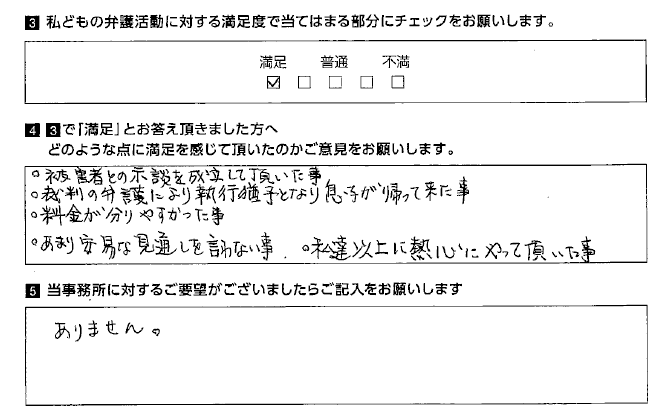 3 私どもの弁護活動に対する満足度で当てはまる部分にチェックをお願いします。
満足 普通 不満
☑ □ □ □ □
4 3で「満足」とお答え頂きました方へ
どのような点に満足を感じて頂いたのかご意見をお願いします。
○被害者との示談を成立して頂いた事
○裁判の弁護により執行猶予となり息子が帰って来た事
○料金が分りやすかった事
○あまり安易な見通しを言わない事. ○私達以上に熱心にやって頂いた事
5 当事務所に対するご要望がございましたらご記入をお願いします
ありません。